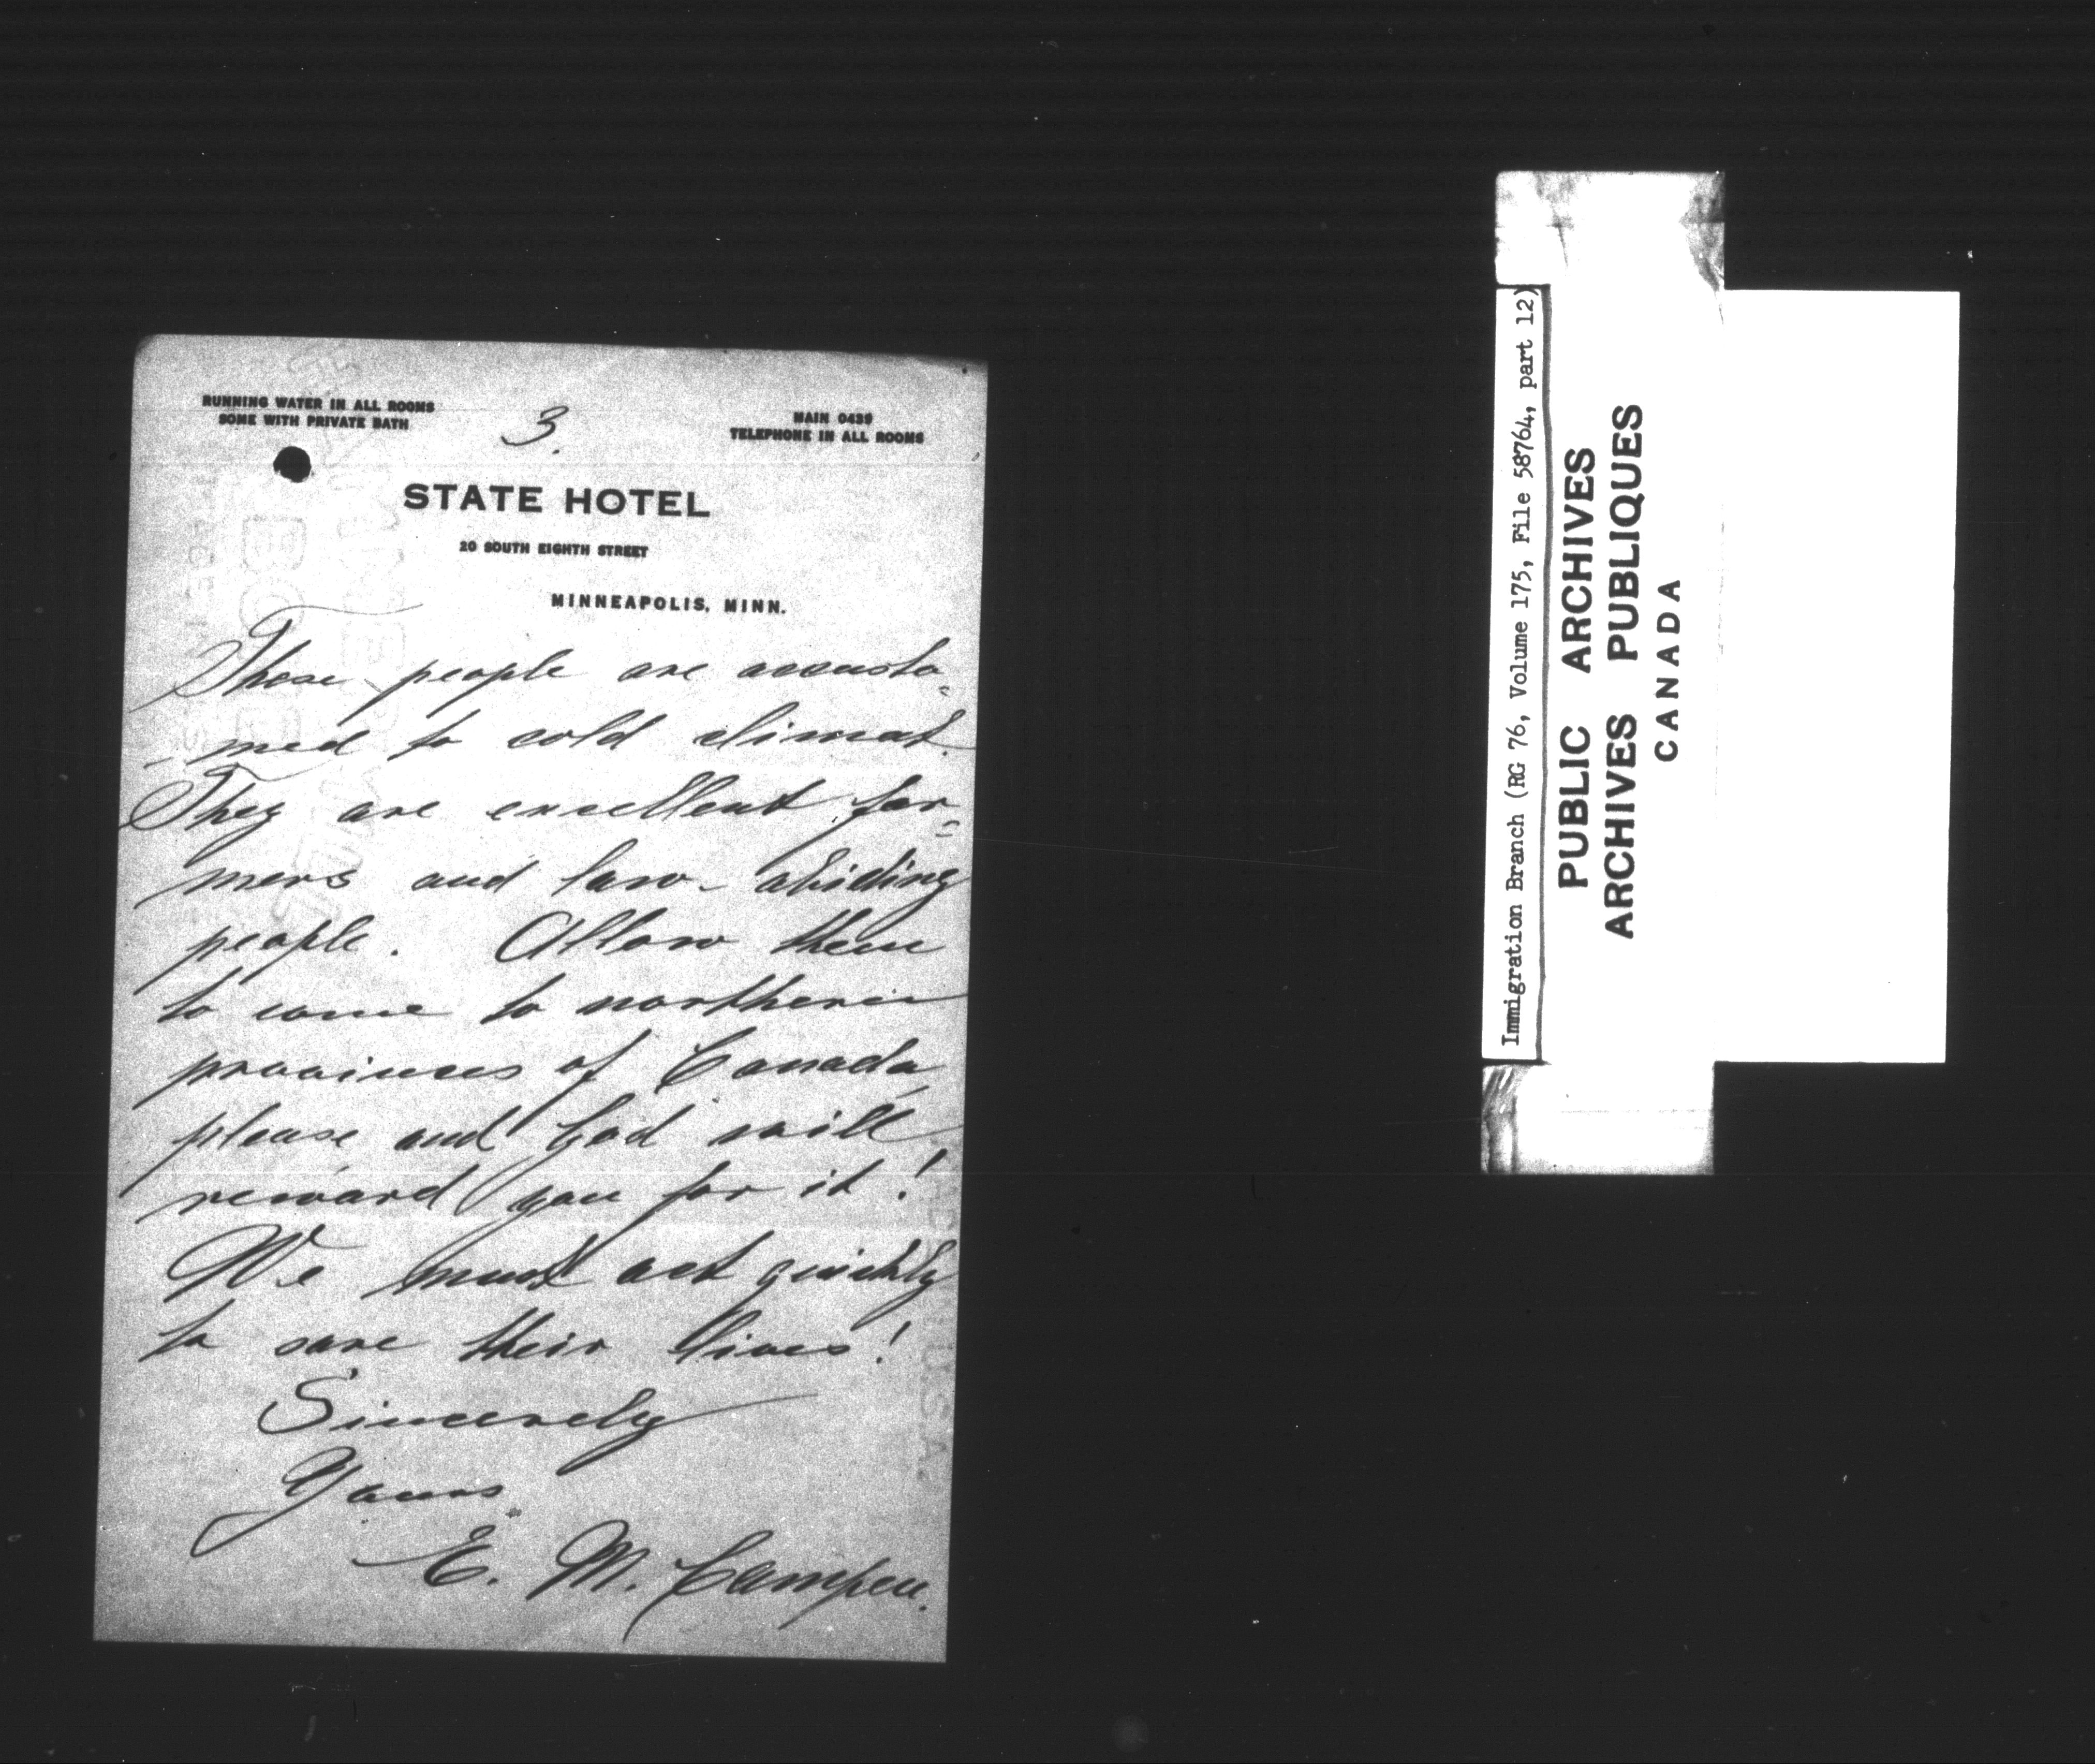 RUNNING WATER IN ALL ROOMS
SOME WITH PRIVATE BATH
3.
MAIN 0439
TELEPHONE IN ALL ROOMS
STATE HOTEL
20 SOUTH EIGHTH STREET
MINNEAPOLIS, MINN.
These people are accusto-
med to cold climat.
They are excellent far=
mers and law-abiding
people. Allow them
to come to northern
provinces of Canada,
please and God will
reward you for it!
We must act quickly
to save their lives!
Sincerely
Yours
E. M. Campen.
Immigration Branch (RG 76, Volume 175, File 58764, part 12)
PUBLIC ARCHIVES
ARCHIVES PUBLIQUES
CANADA